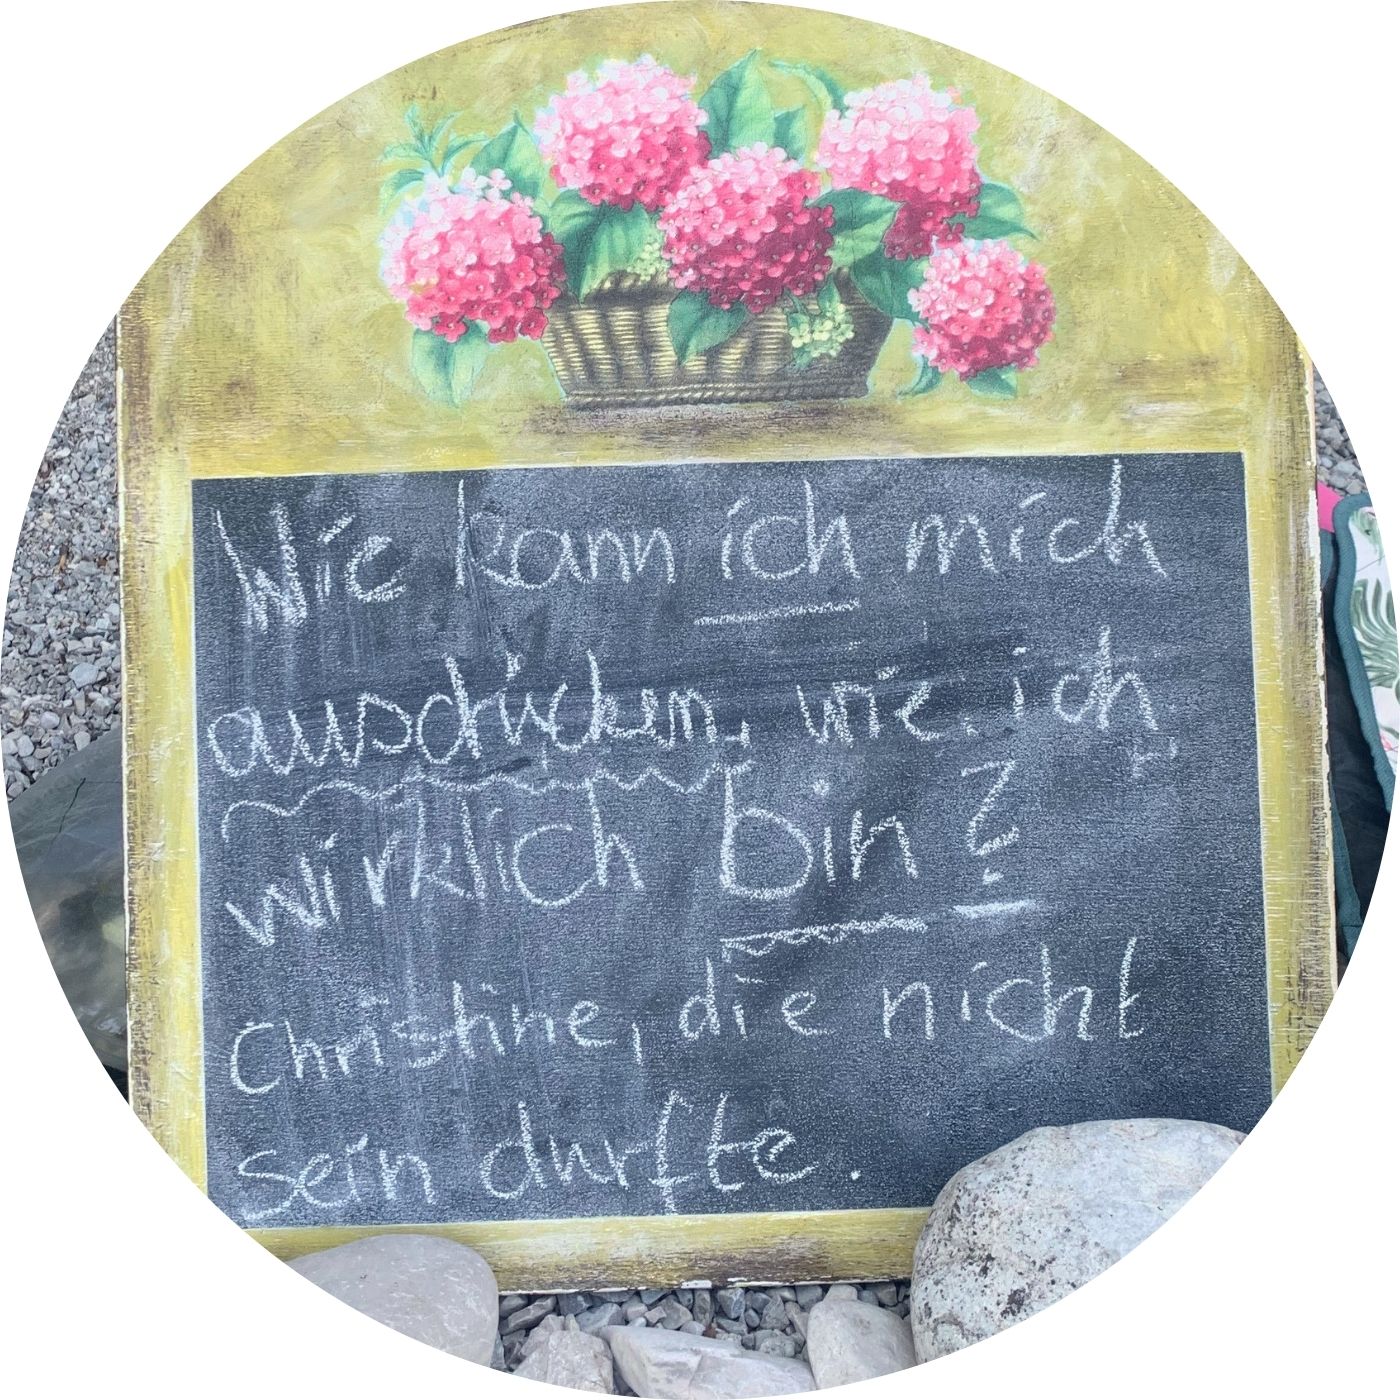 Wie kann ich mich
ausdrücken, wie ich
wirklich bin?
Christine, die nicht
sein durfte.